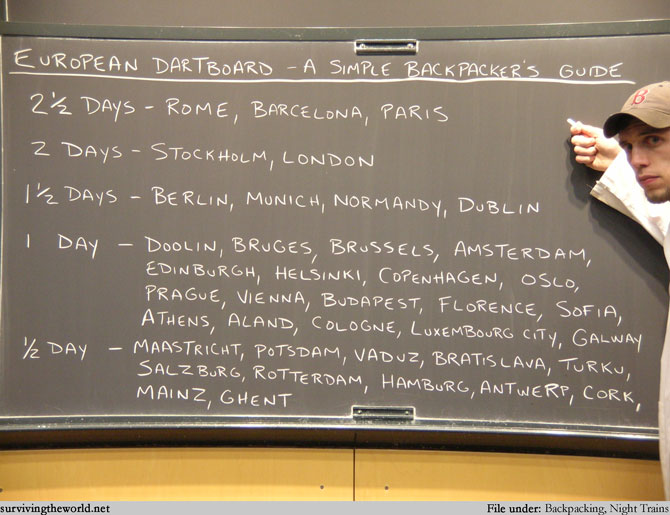 EUROPEAN DARTBOARD - A SIMPLE BACKPACKER'S GUIDE
2 ½ DAYS - ROME, BARCELONA, PARIS
2 DAYS - STOCKHOLM, LONDON
1 ½ DAYS - BERLIN, MUNICH, NORMANDY, DUBLIN
1 DAY - DOOLIN, BRUGES, BRUSSELS, AMSTERDAM,
EDINBURGH, HELSINKI, COPENHAGEN, OSLO,
PRAGUE, VIENNA, BUDAPEST, FLORENCE, SOFIA,
ATHENS, ALAND, COLOGNE, LUXEMBOURG CITY, GALWAY
½ DAY - MAASTRICHT, POTSDAM, VADUZ, BRATISLAVA, TURKU,
SALZBURG, ROTTERDAM, HAMBURG, ANTWERP, CORK,
MAINZ, GHENT
B
survivingtheworld.net
File under: Backpacking, Night Trains